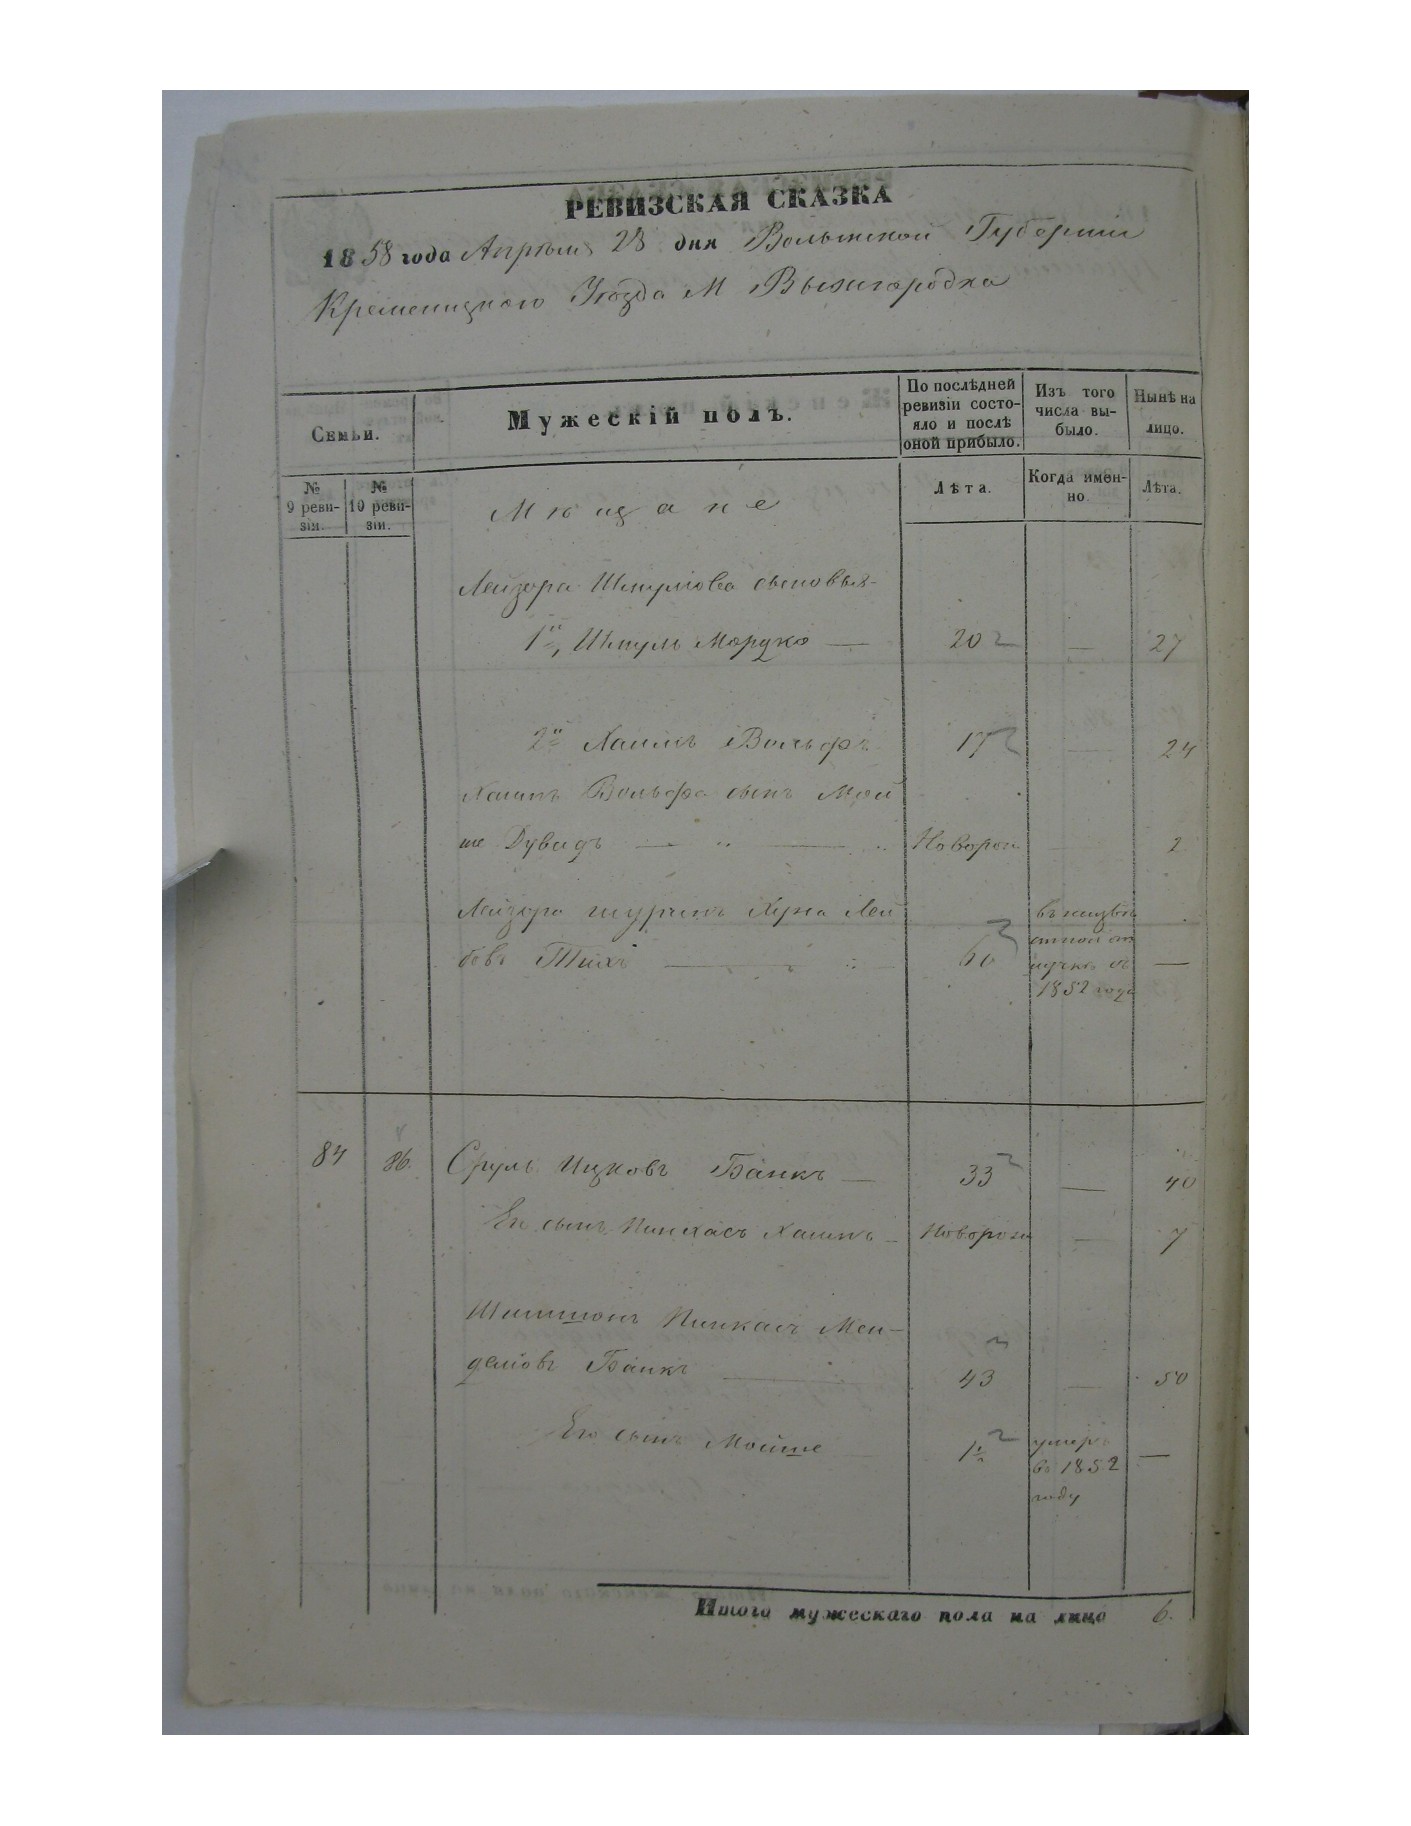 РЕВИЗСКАЯ СКАЗКА
1858 года Апрѣля 28 дня Волынской Губернии
Кременицкого Уѣзда М Вышгородка
Семьи.
Мужескій полъ.
По послѣдней ревизіи состо-
яло и послѣ
оной прибыло.
Изъ того
числа вы-
было.
Нынѣ на
лицо.
№
9 реви-
зіи.
№
10 реви-
зіи.
Лѣта.
Когда имен-
но.
Лѣта.
Мѣщане
Лейзора Шмулюва сыновья-
1й, Шмуль Мордко — 20 — 27
2й Хаимъ Вольфъ 17 — 24
Хаимъ Вольфа сынъ Мой
ше Дувидъ — „ — „ Новорож — 2
Лейзора шуринъ Лей
бовъ 60 —
въ
1852 года
84 86. Сруль Ицковъ Банкъ — 33 — 40
Ег сынъ Пинхасъ Хаимъ — Новорож — 7
Шимшонъ Пинхасъ Мен-
делювъ Банкъ — 43 — 50
Его сынъ Мойше 1½ умеръ —
въ 1852
году
Итого мужескаго пола на лицо 6.